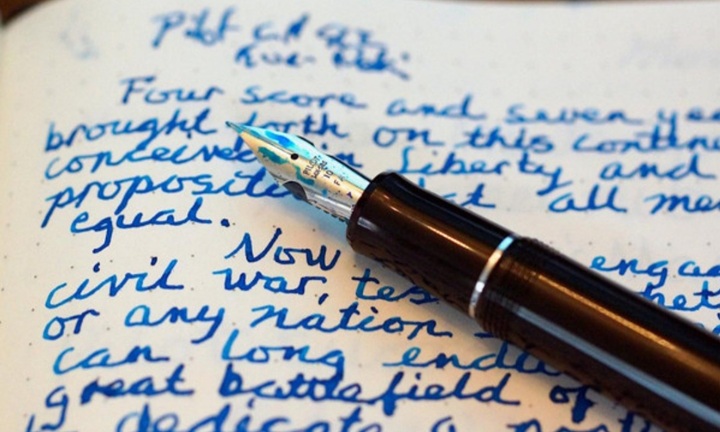 Four score and seven yea
brought forth on this continu
conceived in liberty and
propositi that all me
equal.
Now engag
civil war, tes het
or any nation
can long endu
great battlefield of
dedicate a
PILOT